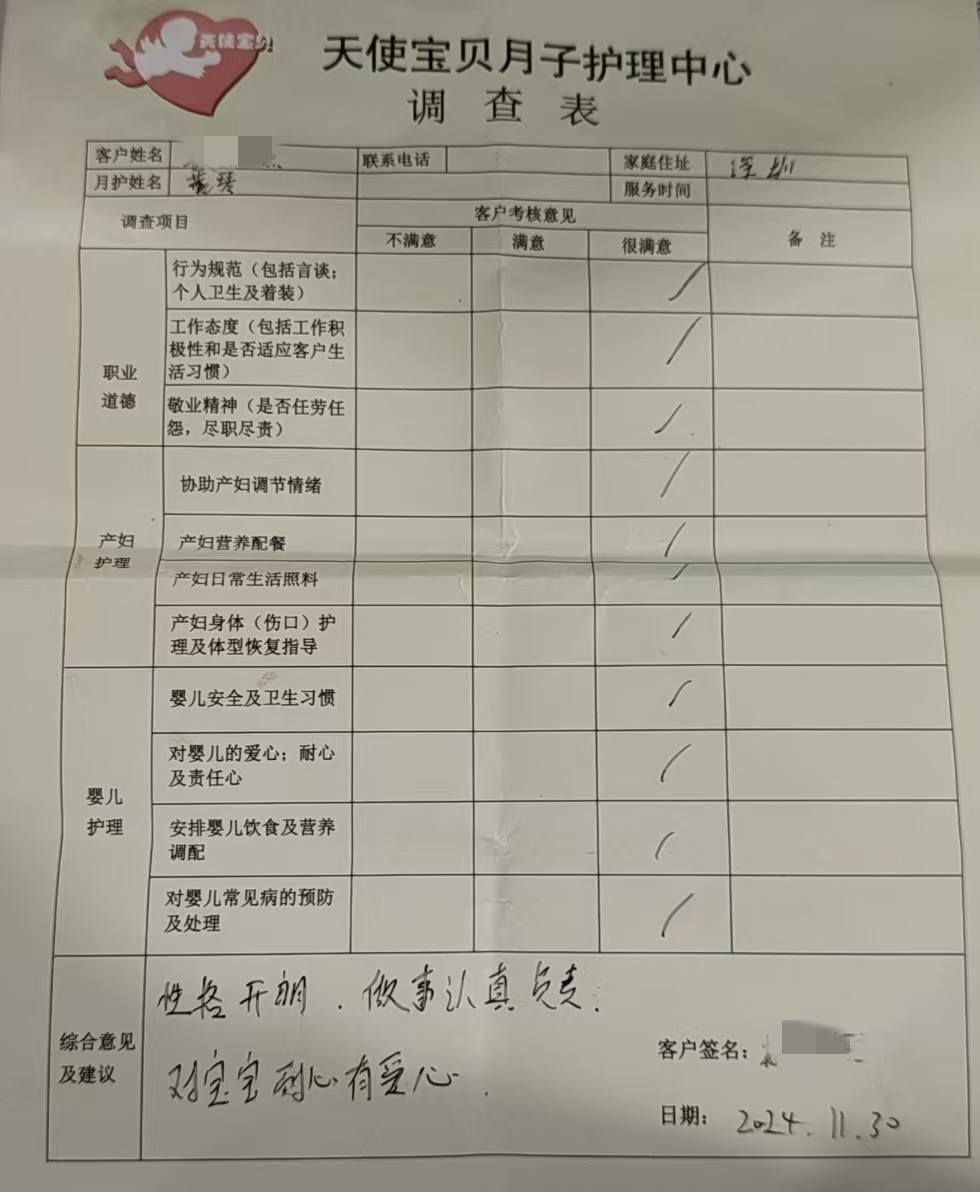 天使宝贝
天使宝贝月子护理中心
调查表
客户姓名 联系电话 家庭住址 深圳
月护姓名 服务时间
调查项目 客户考核意见 备 注
不满意 满意 很满意
职业
道德
行为规范（包括言谈；
个人卫生及着装）
工作态度（包括工作积
极性和是否适应客户生
活习惯）
敬业精神（是否任劳任
怨，尽职尽责）
产妇
护理
协助产妇调节情绪
产妇营养配餐
产妇日常生活照料
产妇身体（伤口）护
理及体型恢复指导
婴儿
护理
婴儿安全及卫生习惯
对婴儿的爱心；耐心
及责任心
安排婴儿饮食及营养
调配
对婴儿常见病的预防
及处理
综合意见
及建议
性格开朗．做事认真负责；
对宝宝耐心有爱心．
客户签名：
日期： 2024.11.30